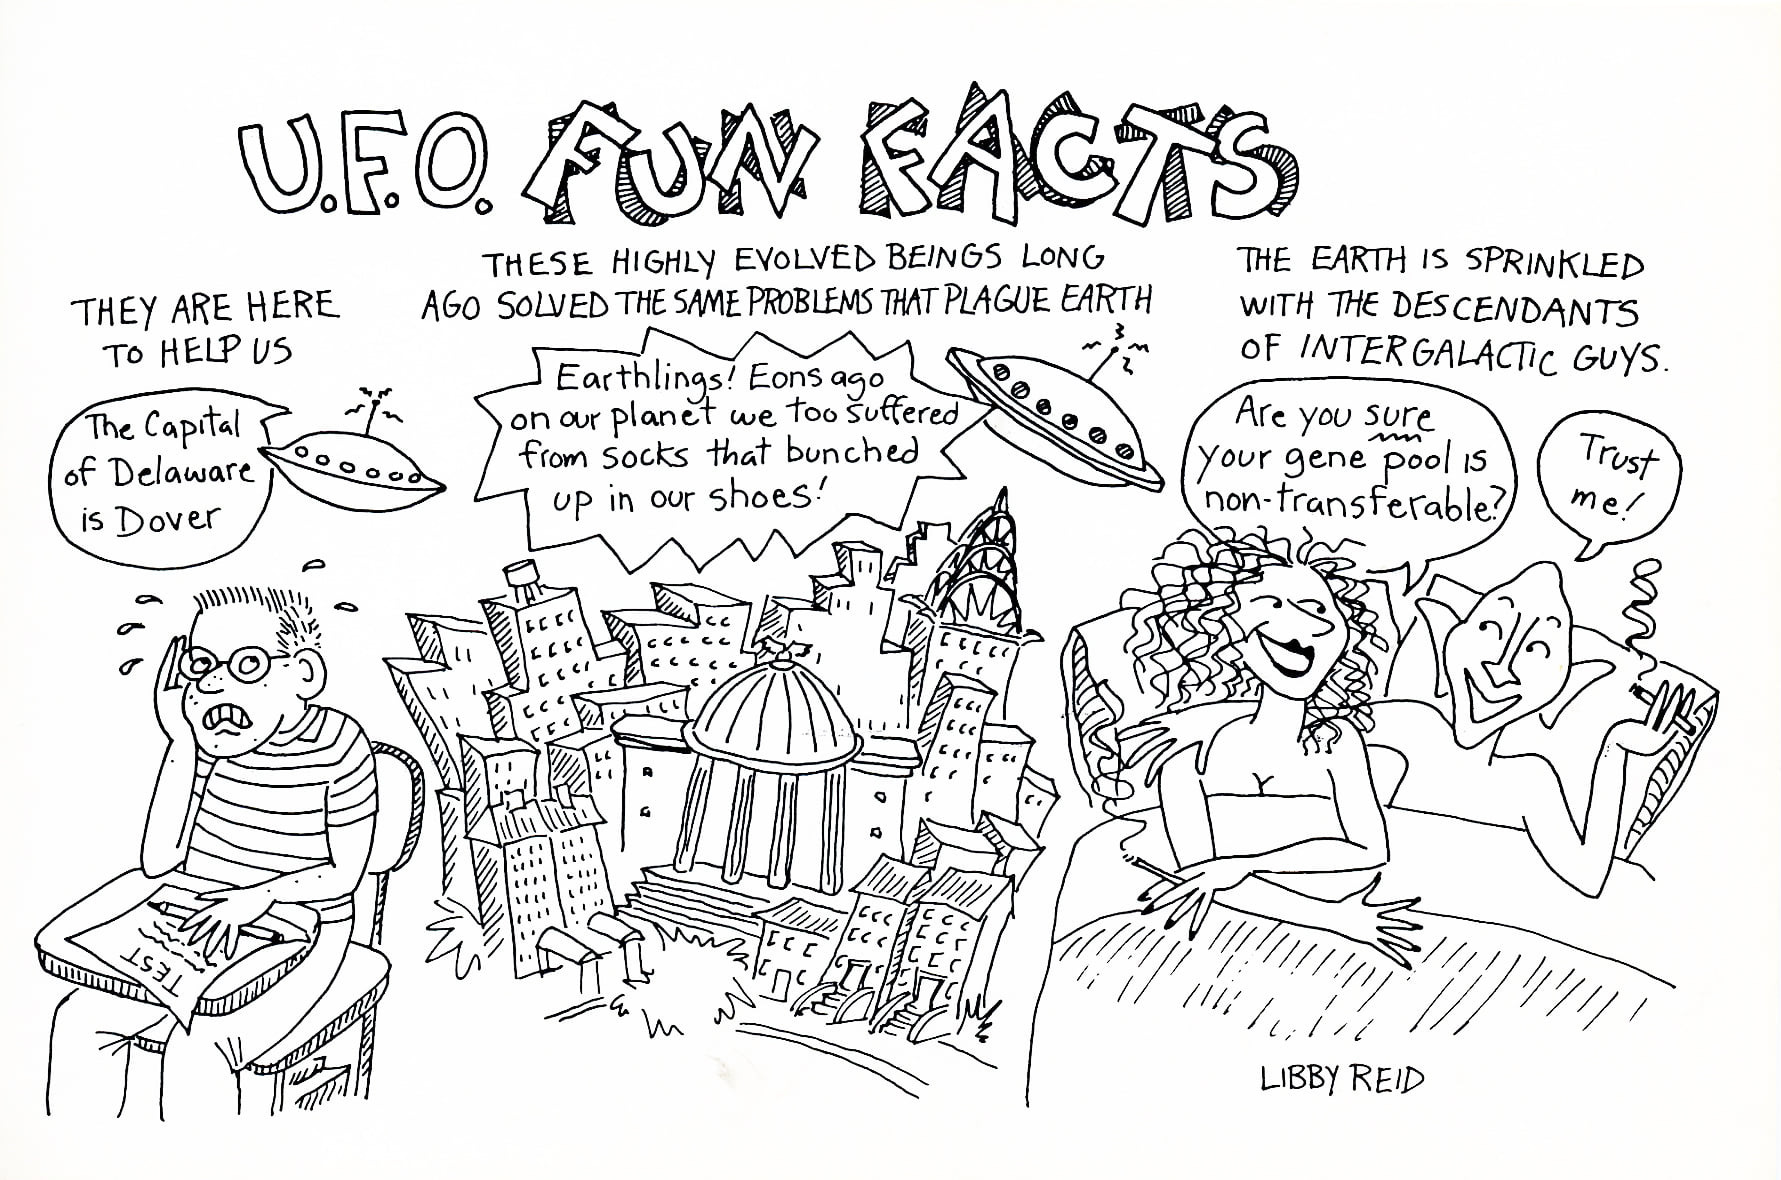 U.F.O. FUN FACTS
THEY ARE HERE
TO HELP US
The Capital
of Delaware
is Dover
TEST
THESE HIGHLY EVOLVED BEINGS LONG
AGO SOLVED THE SAME PROBLEMS THAT PLAGUE EARTH
Earthlings! Eons ago
on our planet we too suffered
from socks that bunched
up in our shoes!
THE EARTH IS SPRINKLED
WITH THE DESCENDANTS
OF INTERGALACTIC GUYS.
Are you sure
your gene pool is
non-transferable?
Trust
me!
LIBBY REID